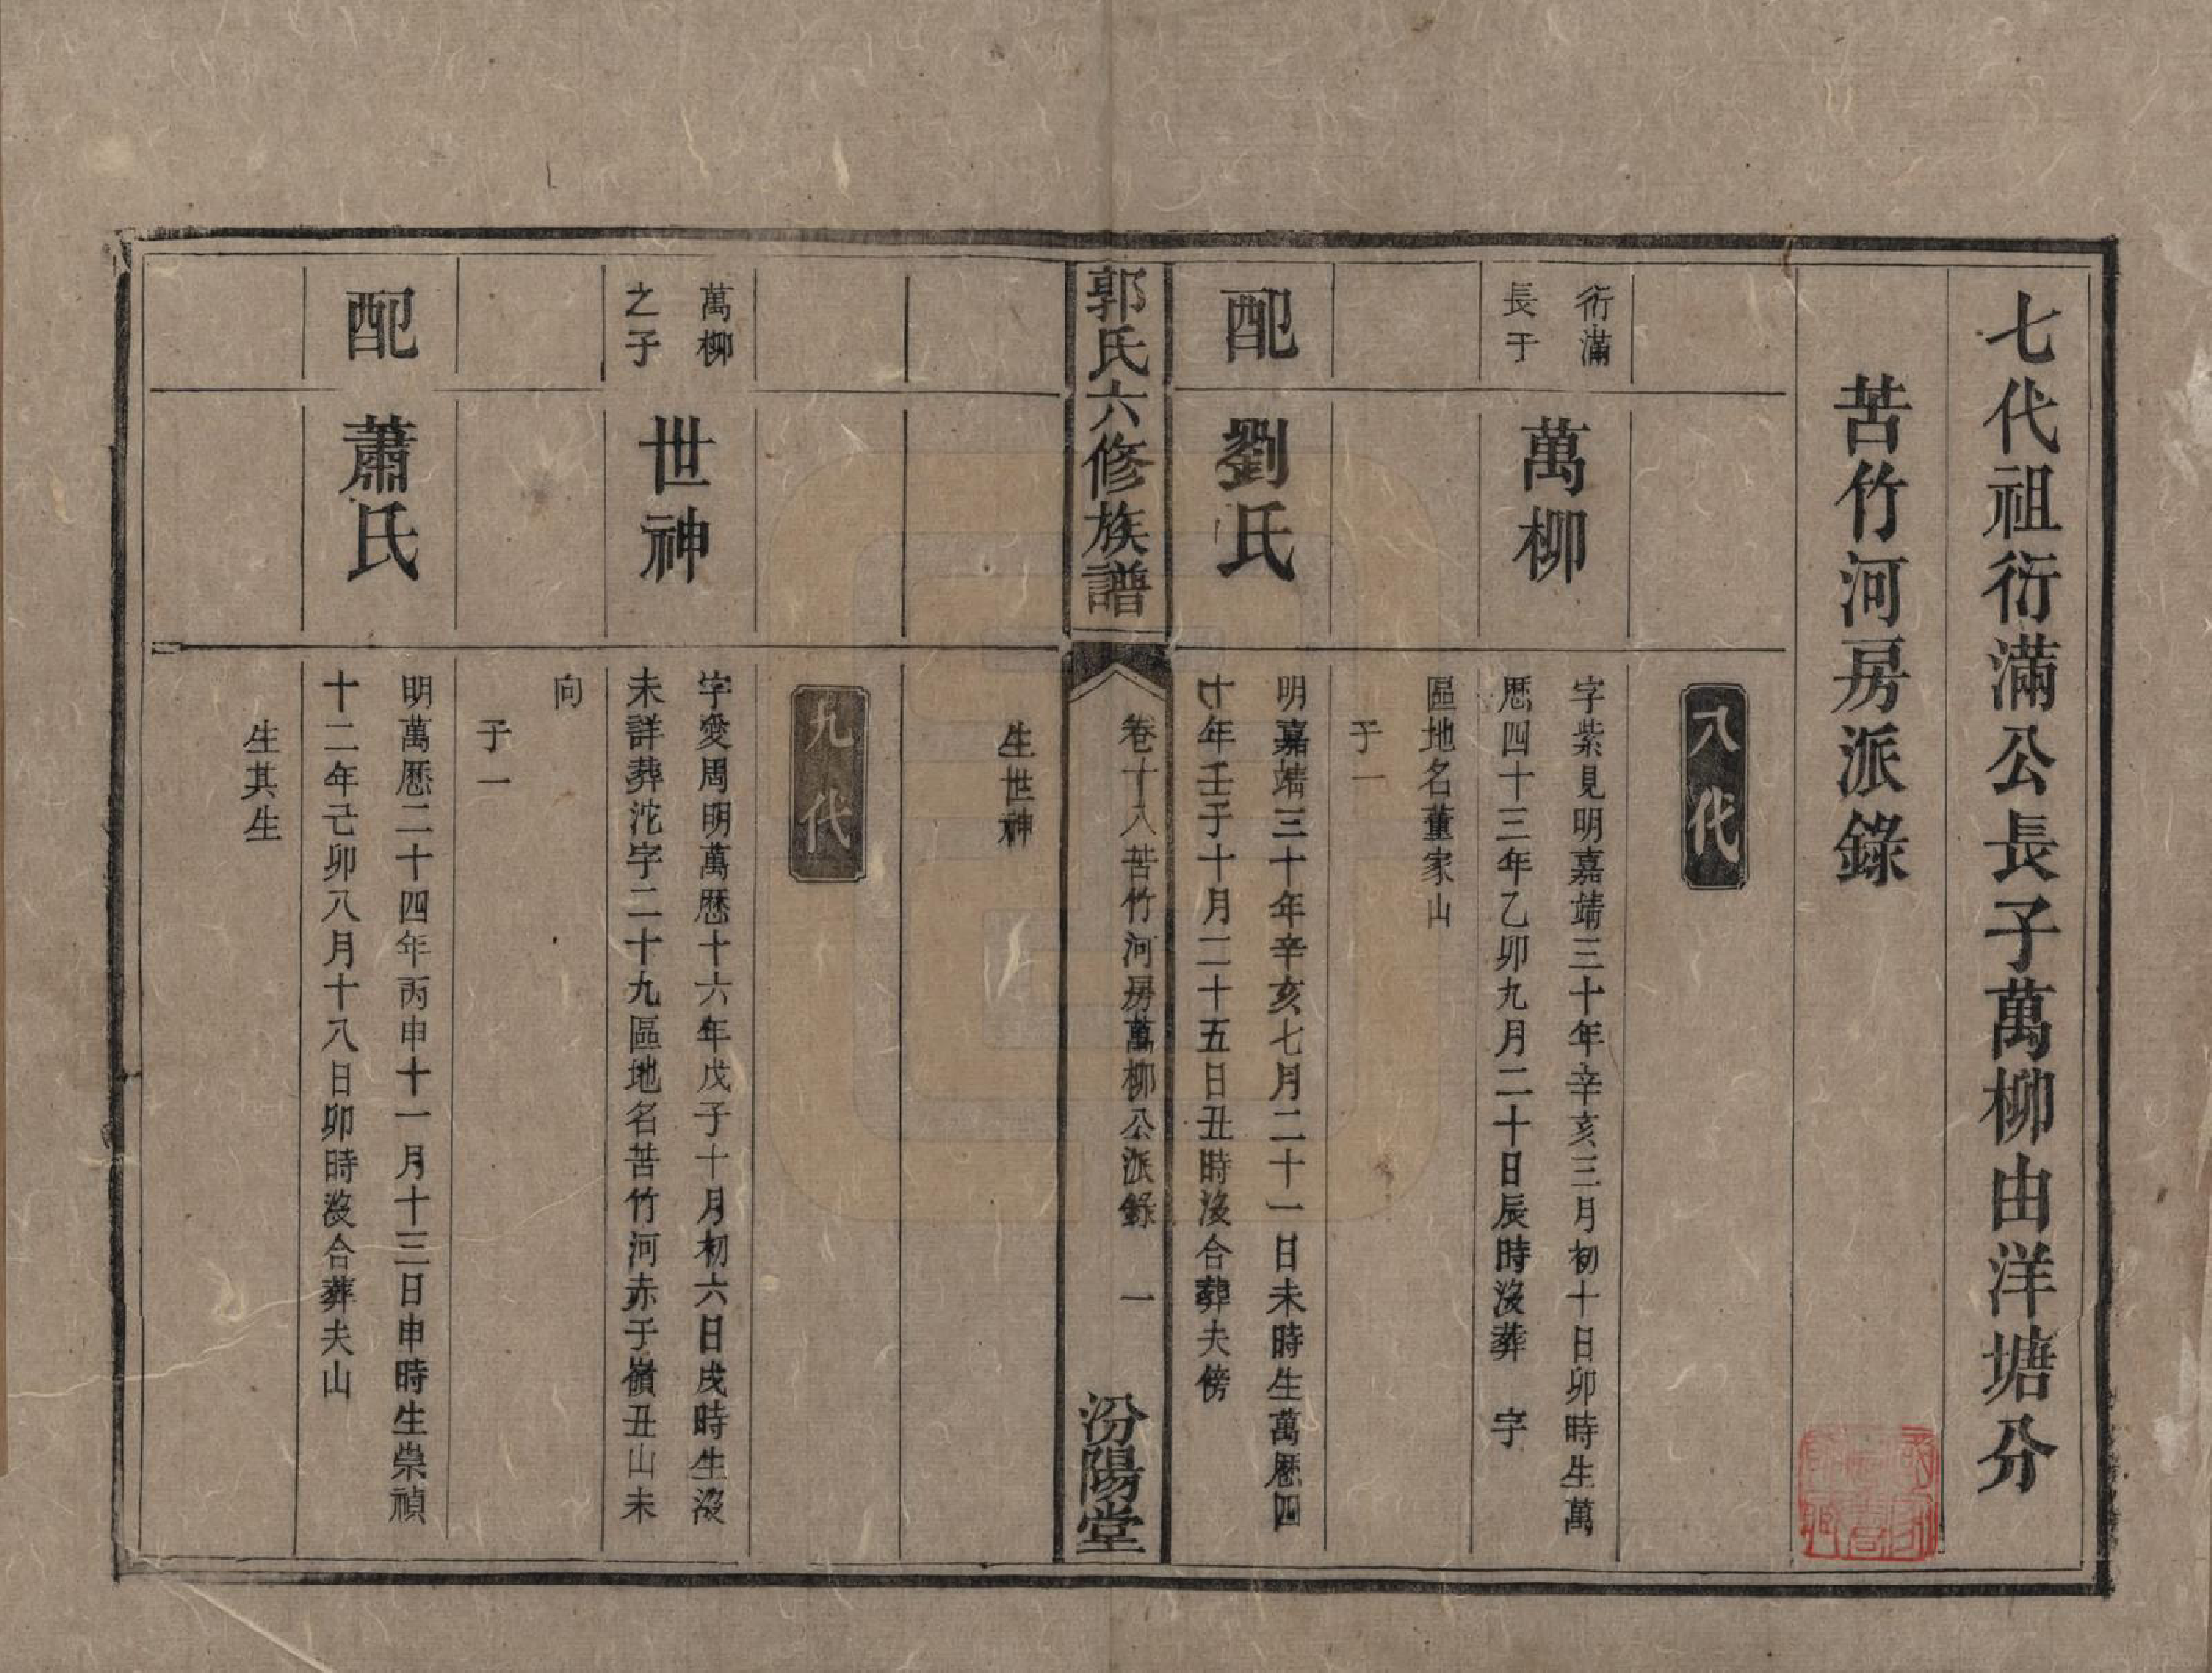 七代祖衍滿公長子萬柳由洋塘分
苦竹河房派錄
八代
衍滿
長子
萬柳
字紫見明嘉靖三十年辛亥三月初十日卯時生萬
歷四十三年乙卯九月二十日辰時沒葬 字
區地名董家山
子一
配
劉氏
明嘉靖三十年辛亥七月二十一日未時生萬歷四
十年壬子十月二十五日丑時沒合葬夫傍
郭氏六修族譜
卷十八苦竹河房萬柳公派錄 一
汾陽堂
生世神
九代
萬柳
之子
世神
字愛周明萬歷十六年戊子十月初六日戌時生沒
未詳葬沱字二十九區地名苦竹河赤子嶺丑山未
向
子一
配
蕭氏
明萬歷二十四年丙申十一月十三日申時生崇禎
十二年己卯八月十八日卯時沒合葬夫山
生其生